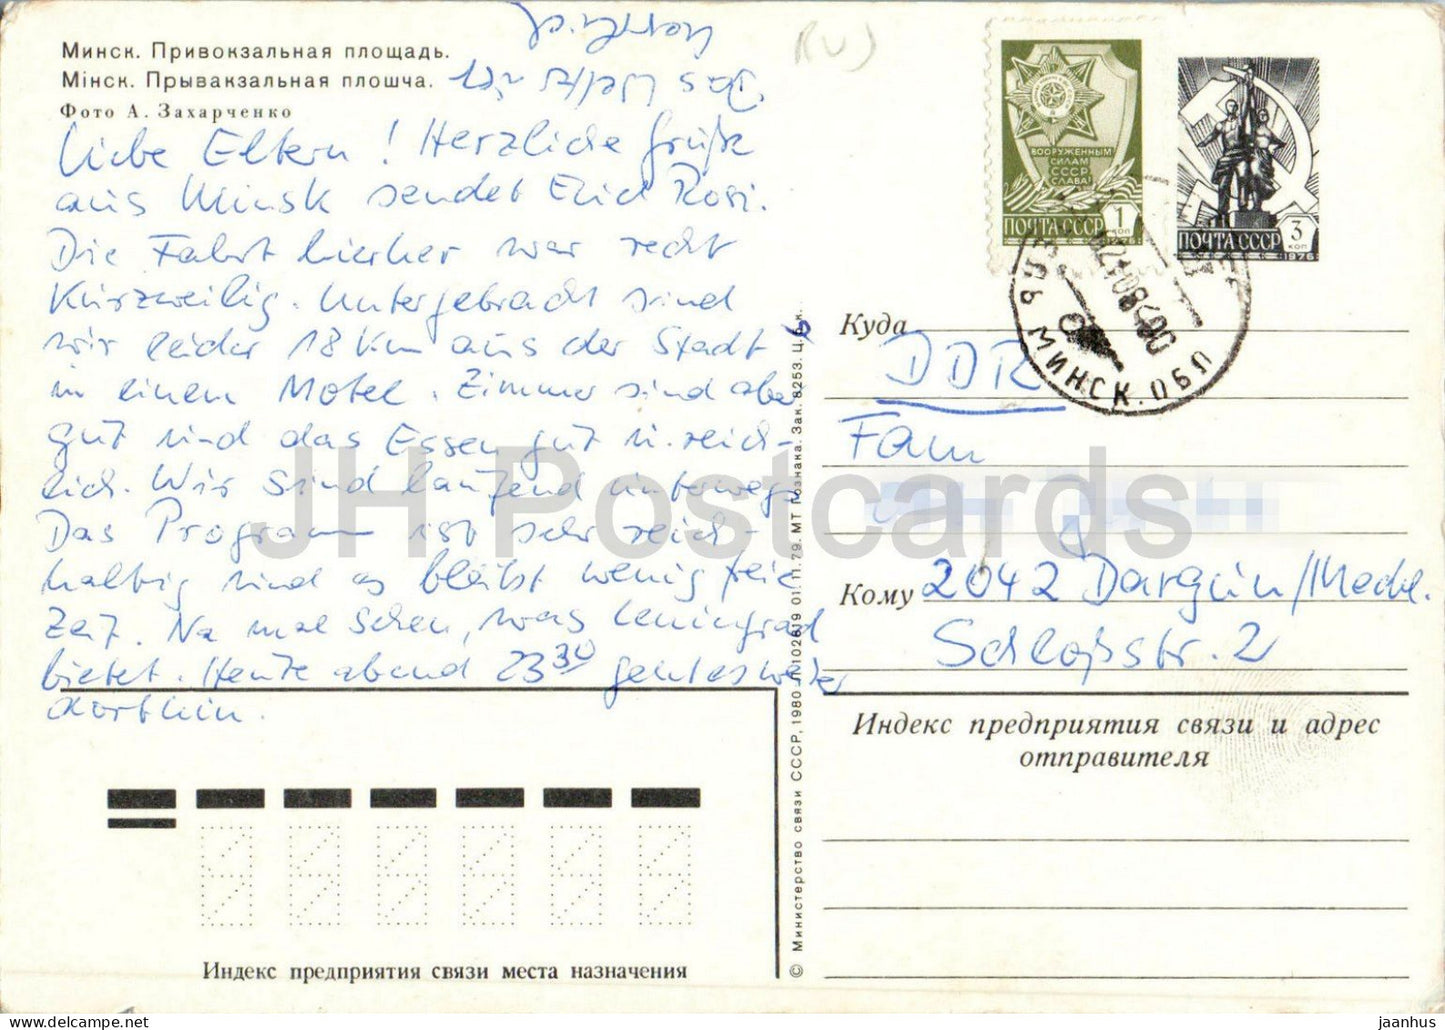 Минск. Привокзальная площадь.
Мінск. Прывакзальная плошча.
Фото А. Захарченко
Liebe Eltern! Herzliche Grüße
aus Minsk sendet Erich Rosi.
Die Fahrt hierher war recht
kurzweilig. Untergebracht sind
wir leider 18 km aus der Stadt
in einem Motel. Zimmer sind aber
gut und das Essen gut u. reich-
lich. Wir sind laufend unterwegs
Das Programm ist sehr reich-
haltig und es bleibt wenig freie
Zeit. Na mal sehen, was Leningrad
bietet. Heute abend 23 30 geht es weiter
dorthin.
(RU)
ВООРУЖЕННЫМ
СИЛАМ
СССР
СЛАВА!
ПОЧТА СССР 1 КОП
ПОЧТА СССР 3 КОП
1976
МИНСК. ОБЛ
Куда DDR
Fam
Кому 2042 Dargun/Meckl.
Schloßstr. 2
Индекс предприятия связи и адрес
отправителя
Индекс предприятия связи места назначения
© Министерство связи СССР, 1980 102619 01.11.79. МТ Гознака. Зак. 8253. Ц. 5 к.
JH Postcards
https://www.delcampe.net
jaanhus